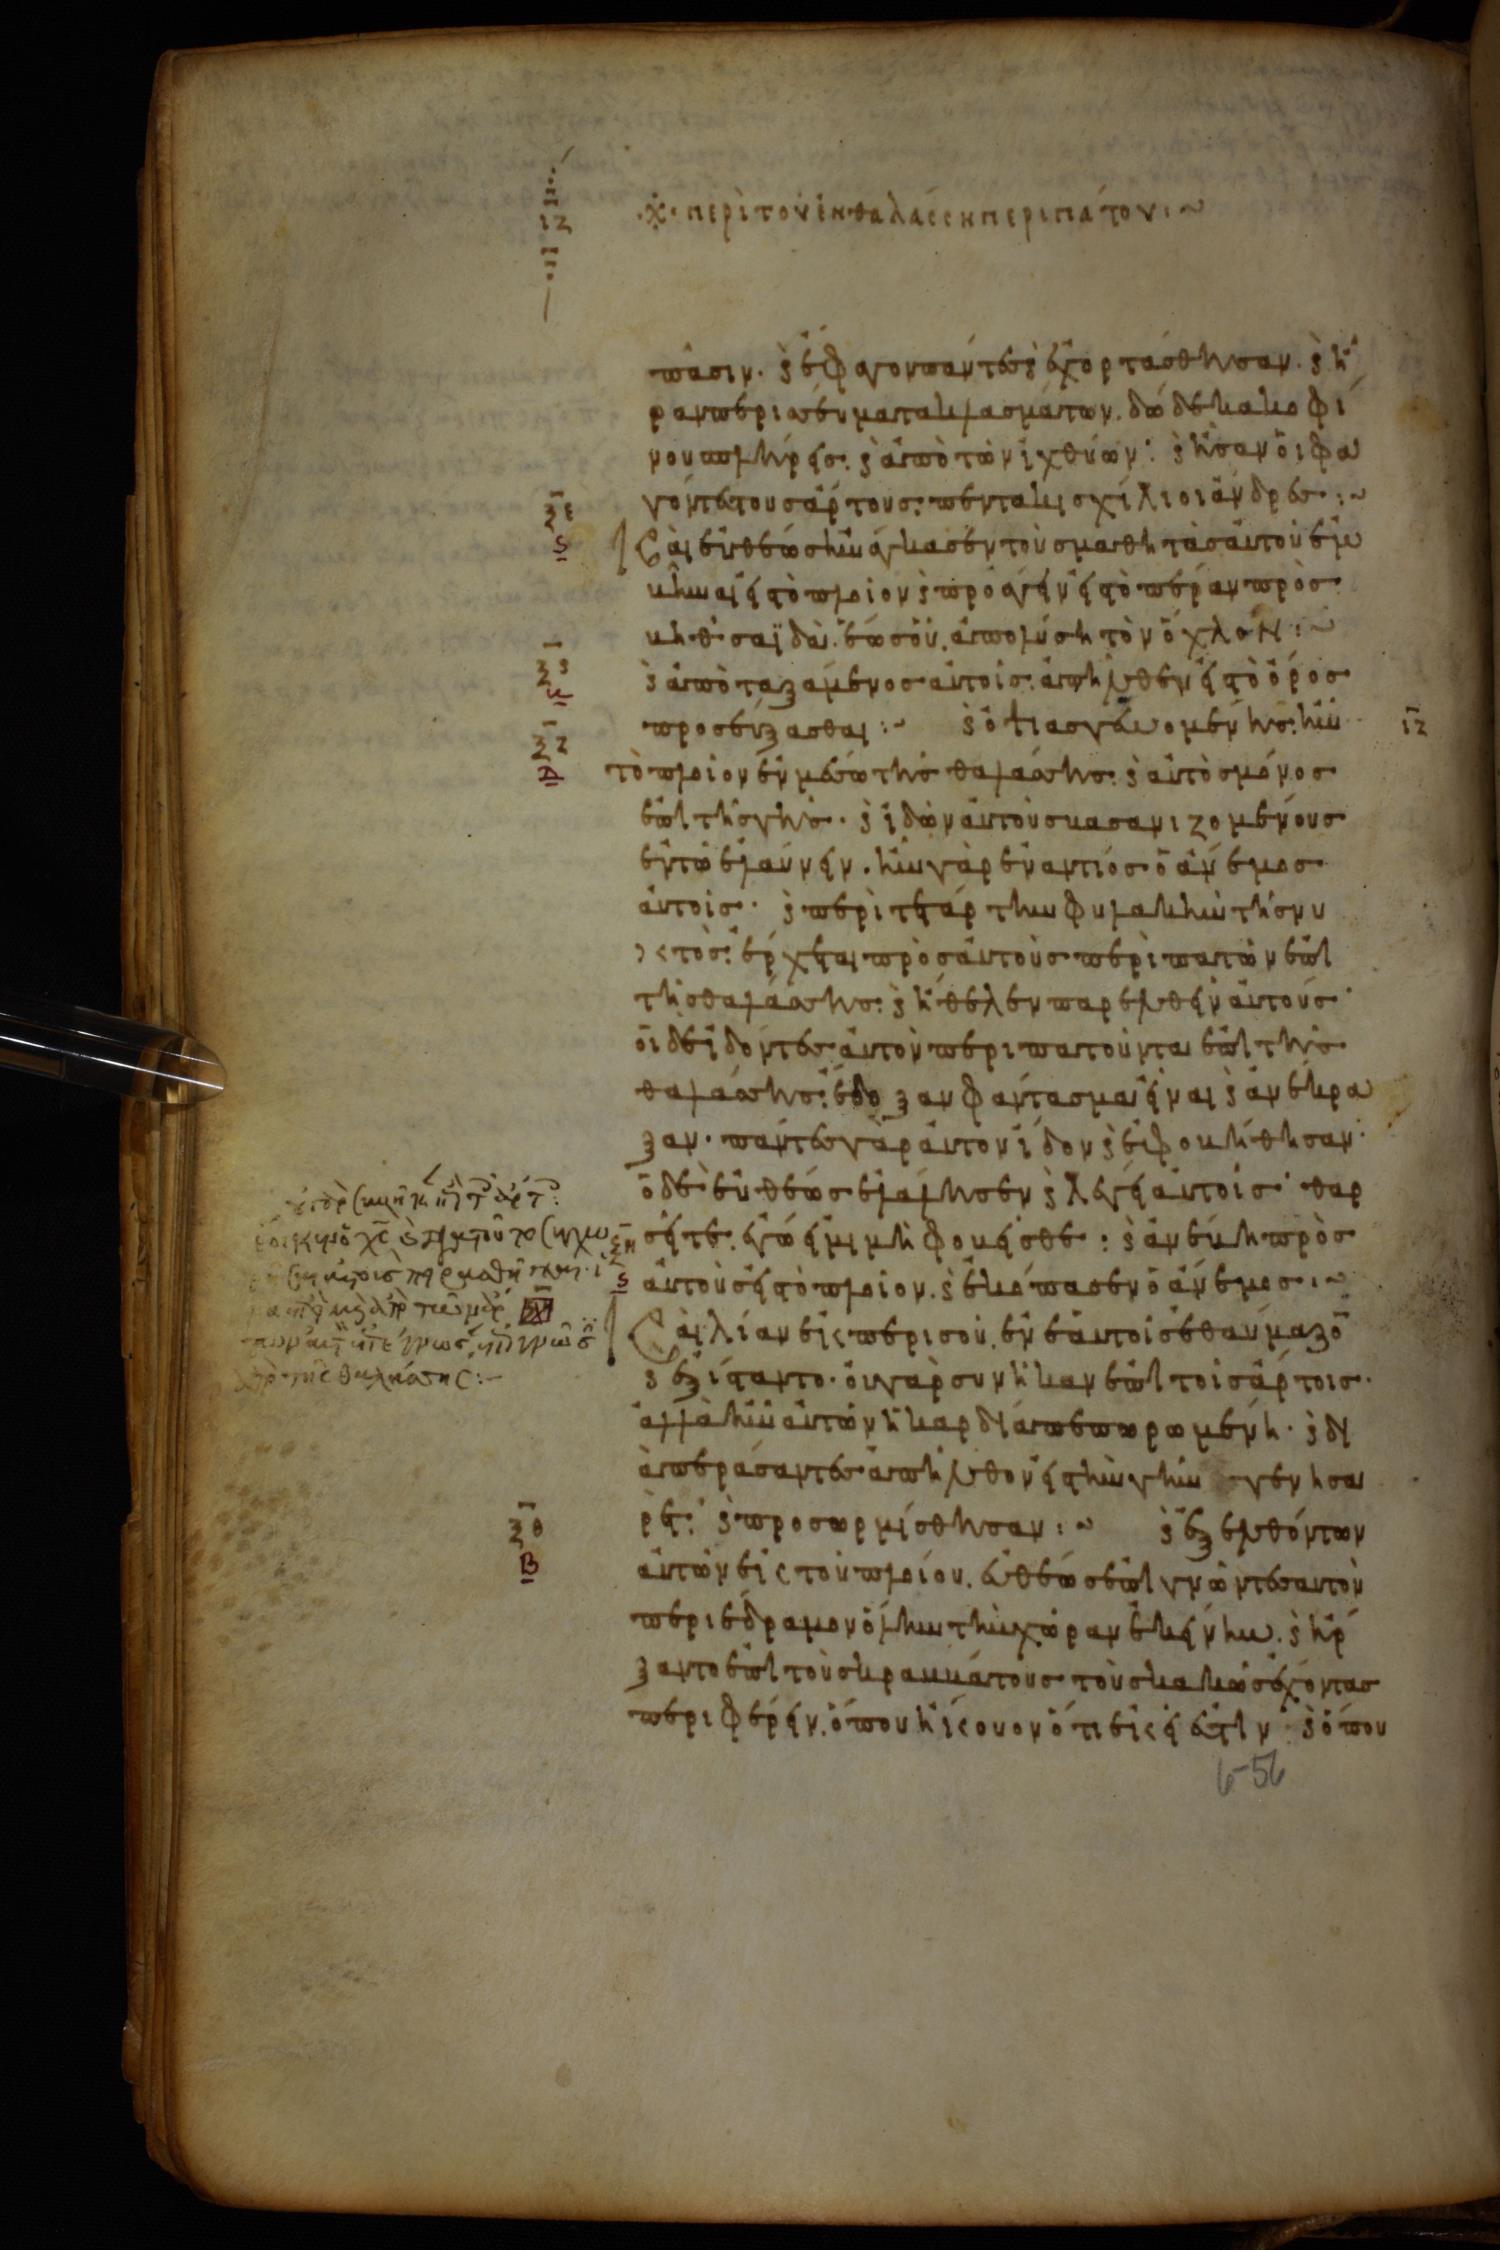 ιζ
περὶ τοῦ ἐν θαλάσσῃ περιπάτου
πᾶσιν· ϗ ἔφαγον πάντες ϗ ἐχορτάσθησαν· ϗ ἦ
ραν περισεύματα κλασμάτων δώδεκα κοφί
νου πλήρεις· ϗ ἀπὸ τῶν ἰχθύων· ϗ ἦσαν οἱ φα
ξε ς γόντες τους ἄρτους· πεντακισχίλιοι ἄνδρες·
Καὶ εὐθέως ἠνάγκασεν τοὺς μαθητὰς αὐτοῦ ἐμ
βῆναι εἰς τὸ πλοῖον ϗ προάγειν εἰς τὸ πέραν πρὸς
βηθσαϊδὰ· ἕως οὗ ἀπολύση τὸν ὄχλον
ξς ϗ ἀποταξάμενος αὐτοῖς· ἀπῆλθεν εἰς τὸ ὄρος
ξζ προσεύξασθαι· ϗ ὀψίας γενομένης· ἦν ιζ
Δ τὸ πλοῖον ἐν μέσω τῆς θαλάσσης· ϗ αὐτὸς μόνος
ἐπὶ τῆς γῆς· ϗ ἰδὼν αὐτοὺς βασανιζομένους
ἐν τῶ ἐλαύνειν· ἦν γὰρ ἐναντίος ὁ ἄνεμος
αὐτοῖς· ϗ περὶ τετάρτην φυλακὴν τῆς νυ
κτὸς· ἔρχεται πρὸς αὐτοὺς περιπατῶν ἐπὶ
τῆς θαλάσσης· ϗ ἤθελεν παρελθεῖν αὐτούς·
οἱ δὲ ἰδόντες αὐτὸν περιπατοῦντα ἐπὶ τῆς
θαλάσσης· ἔδοξαν φάντασμα εἶναι ϗ ἀνέκρα
ξαν· πάντες γὰρ αὐτὸν ἴδον ϗ ἐφοβήθησαν·
ὁ δὲ εὐθέως ἐλάλησεν ϗ λέγει αὐτοῖς· θαρ
ξη σεῖτε· ἐγώ εἰμι μὴ φοβεῖσθε· ϗ ἀνέβη πρὸς
ς αὐτοὺς εἰς τὸ πλοῖον· ϗ ἐκόπασεν ὁ ἄνεμος·
Καὶ λίαν ἐκ περισοῦ ἐν ἑαυτοῖς ἐθαύμαζον
ϗ ἐξίσταντο· οὐ γὰρ συνῆκαν ἐπὶ τοῖς ἄρτοις·
ἀλλὰ ἦν αὐτῶν ἡ καρδία πεπωρωμένη· ϗ δι
απεράσαντες ἀπῆλθον εἰς τὴν γῆν γενησα
ξθ ρέτ· ϗ προσωρμίσθησαν· ϗ ἐξελθόντων
Β αὐτῶν ἐκ τοῦ πλοίου· εὐθέως ἐπιγνόντες αυτὸν
περιέδραμον ὅλην τὴν χώραν ἐκείνην· ϗ ἤρ
ξαντο ἐπὶ τοὺς κραββάτους τοὺς κακῶς ἔχοντας
περιφέρειν· ὅπου ἤκουον ὅτι ἐκεῖ ἐστὶν· ϗ ὅπου
6-56